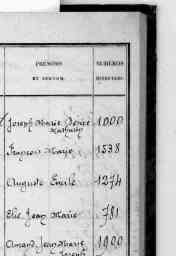 PRÉNOMS NUMÉROS
ET SURNOM.
Joseph Marie Désiré 1000
Mathurin
François Marie 1538
Auguste Emile 1274
Elie Jean Marie 781
Amand Jean Marie 1900
Joseph